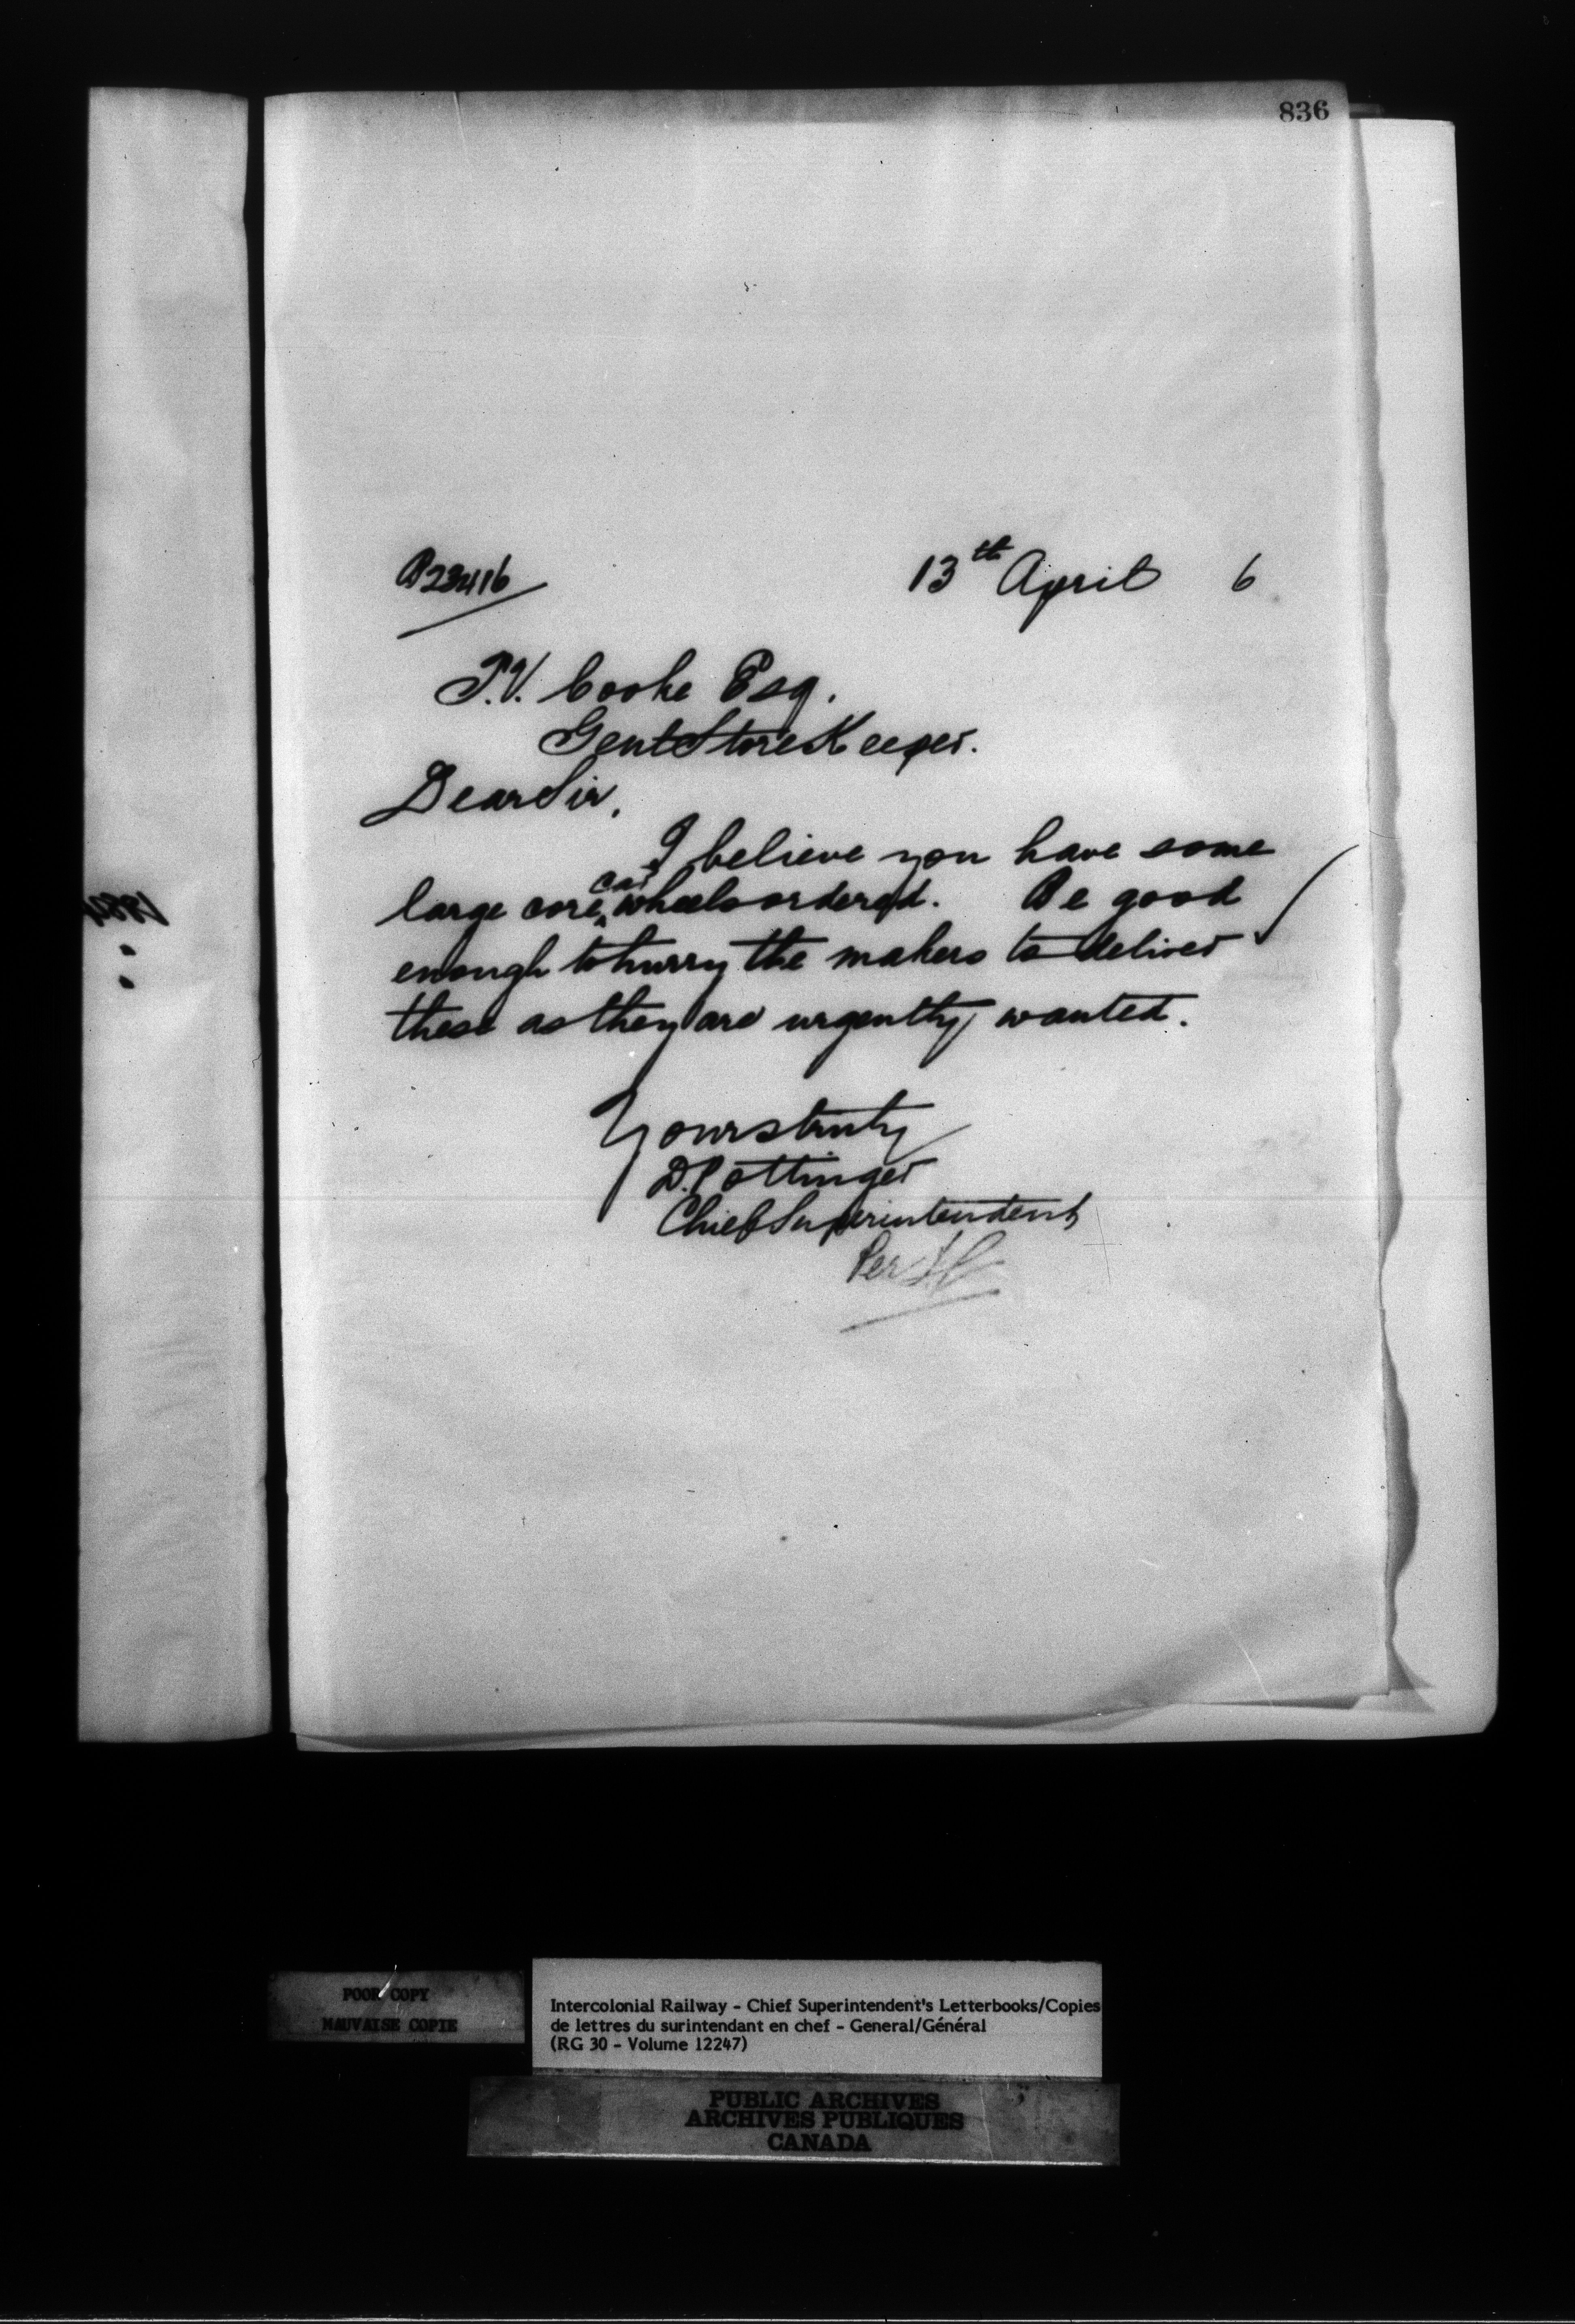 836
B23416
13th April 6
T.V. Cooke Esq.
Genl Store Keeper.
Dear Sir,
I believe you have some
large core car wheels ordered. Be good
enough to hurry the makers to deliver
these as they are urgently wanted.
Yours truly
D. Pottinger
Chief Superintendent
Per
POOR COPY
MAUVAISE COPIE
Intercolonial Railway - Chief Superintendent's Letterbooks/Copies
de lettres du surintendant en chef - General/Général
(RG 30 - Volume 12247)
PUBLIC ARCHIVES
ARCHIVES PUBLIQUES
CANADA